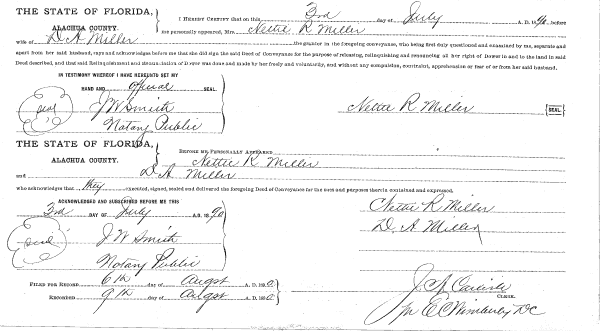 THE STATE OF FLORIDA,
ALACHUA COUNTY.
I HEREBY CERTIFY that on this 3rd day of July A. D. 1890, before
me personally appeared, Mrs. Nettie R Miller
wife of D. A. Miller the grantor in the foregoing conveyance, who being first duly questioned and examined by me, separate and
apart from her said husband, says and acknowledges before me that she did sign the said Deed of Conveyance for the purpose of releasing, relinquishing and renouncing all her right of Dower in and to the land in said
Deed described, and that said Relinquishment and Renunciation of Dower was done and made by her freely and voluntarily, and without any compulsion, constraint, apprehension or fear of or from her said husband.
IN TESTIMONY WHEREOF I HAVE HEREUNTO SET MY
HAND AND official SEAL.
Seal J W Smith
Notary Public
Nettie R Miller [SEAL]
THE STATE OF FLORIDA,
ALACHUA COUNTY.
BEFORE ME PERSONALLY APPEARED
Nettie R. Miller
and D. A Miller
who acknowledges that they executed, signed, sealed and delivered the foregoing Deed of Conveyance for the uses and purposes therein contained and expressed.
ACKNOWLEDGED AND SUBSCRIBED BEFORE ME THIS
3rd DAY OF July A.D. 1890
Seal J W Smith
Notary Public
Nettie R Miller
D. A Miller
FILED FOR RECORD 6th day of Augst A. D. 1890
RECORDED 9th day of Augst A. D. 1890
J. A. Carlisle
CLERK.
E C Wimberly DC